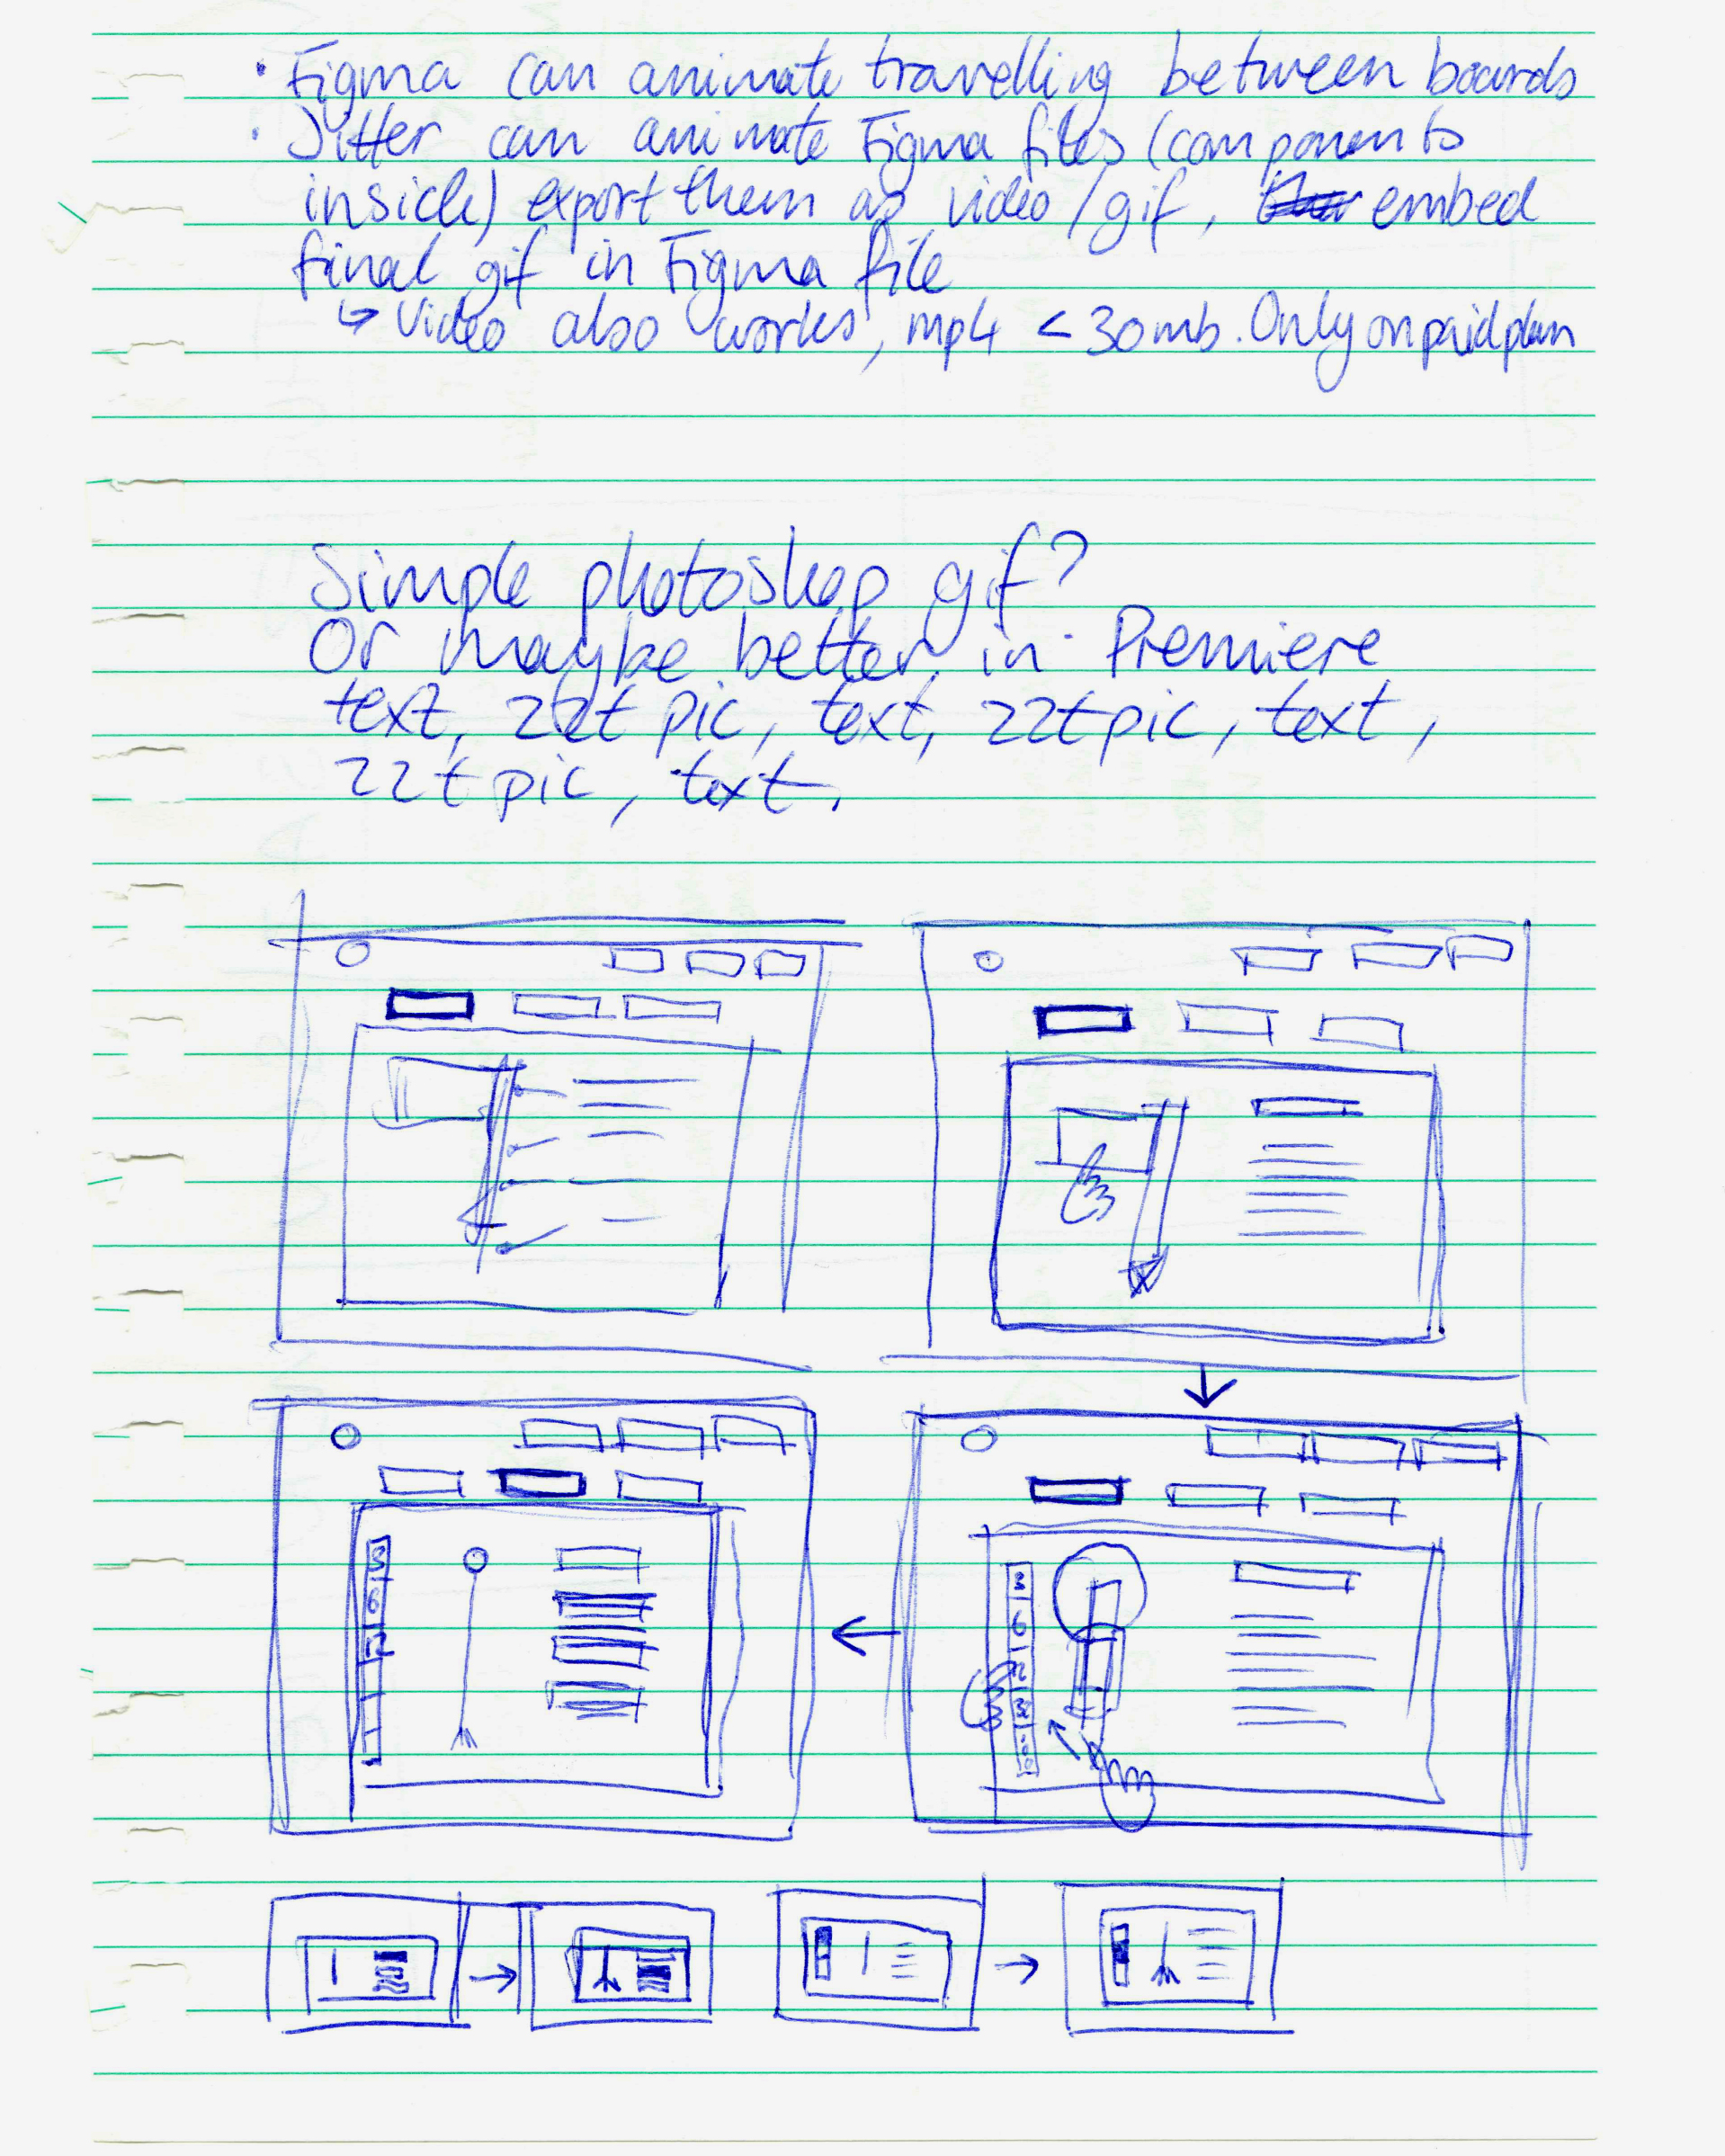 • Figma can animate travelling between boards
• Jitter can animate Figma files (components
inside) export them as video/gif, embed
final gif in Figma file
↳ Video also works, mp4 < 30mb. Only on paid plan
Simple photoshop gif?
Or maybe better in Premiere
text, 22t pic, text, 22t pic, text,
22t pic, text.